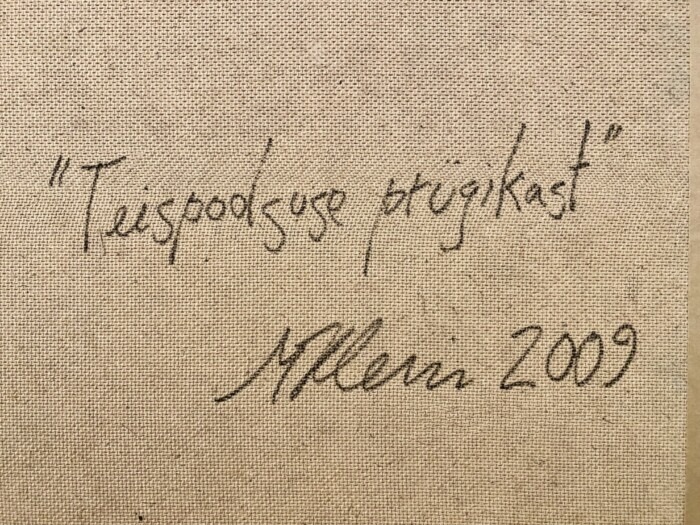 "Teispoolsuse prügikast"
MKlein 2009